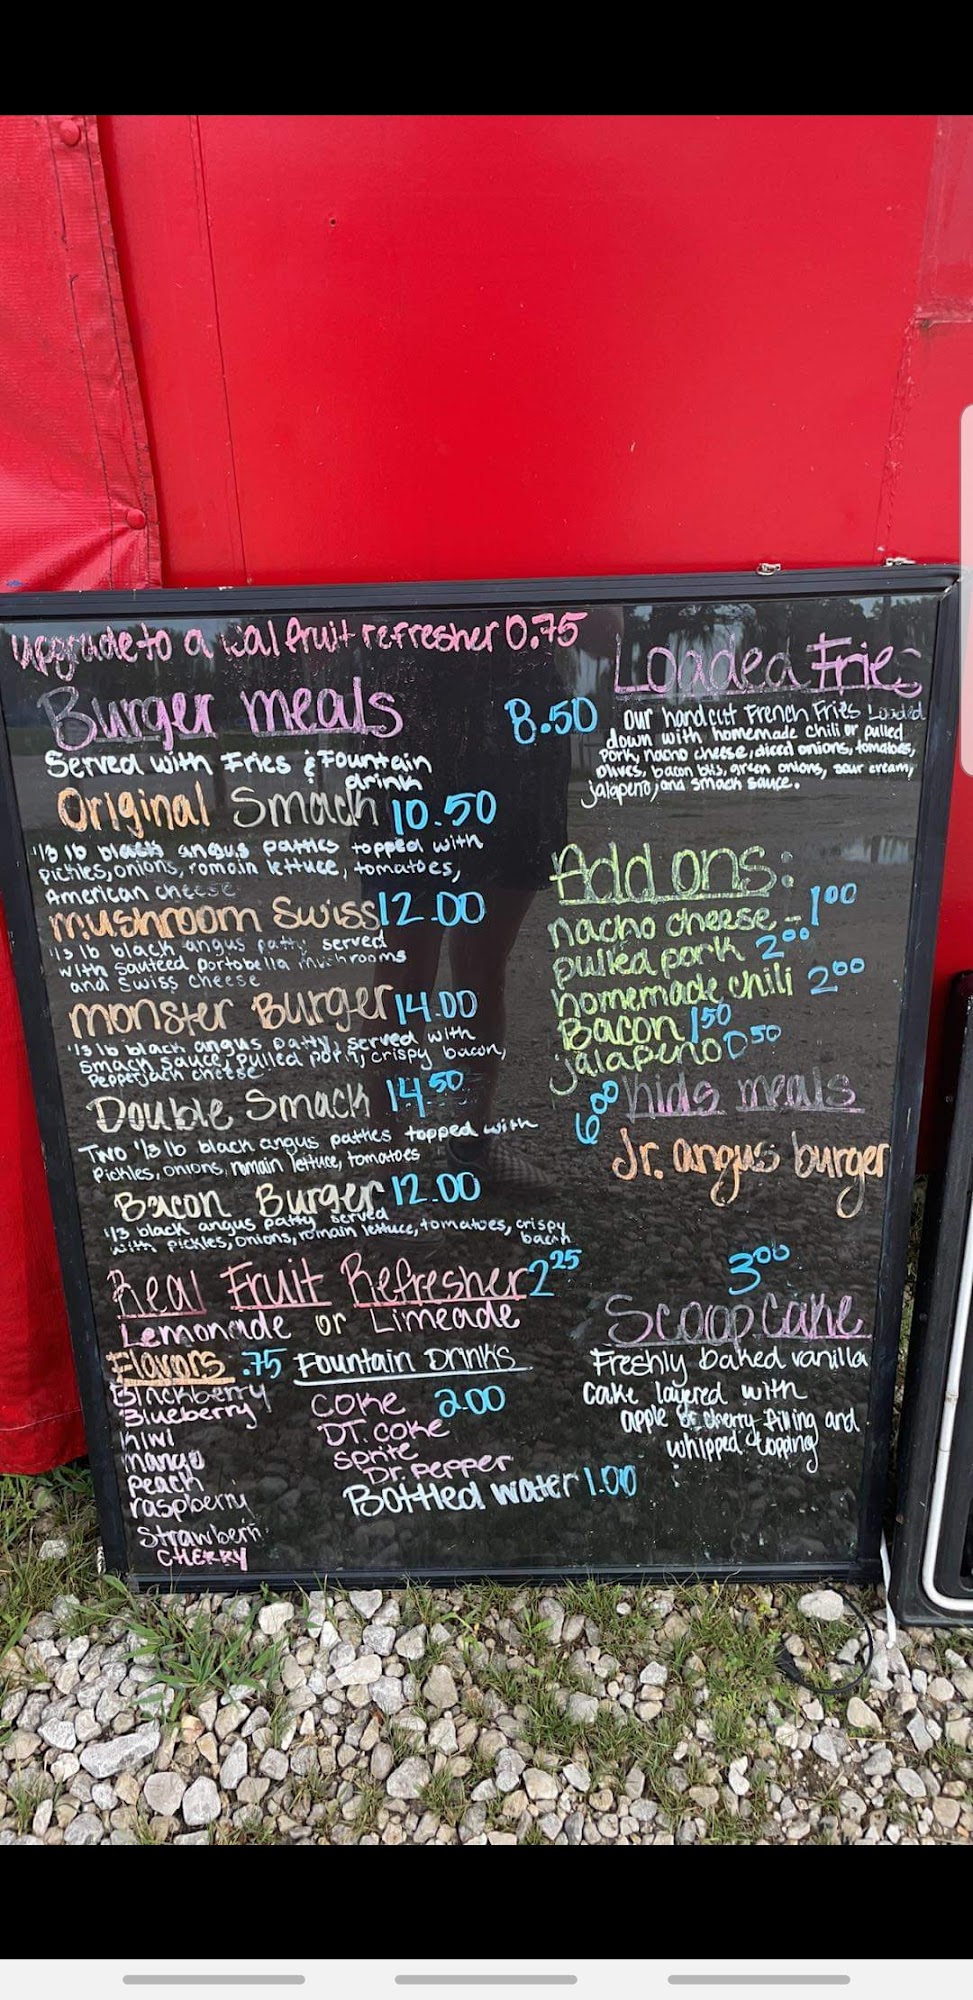 upgrade to a real fruit refresher 0.75
Burger meals
Served with Fries & Fountain
drink
Original Smack 10.50
1/3 lb black angus patties topped with
pickles, onions, romain lettuce, tomatoes,
American cheese
mushroom Swiss 12.00
1/3 lb black angus patty served
with sautéed portobella mushrooms
and Swiss cheese
monster Burger 14.00
1/3 lb black angus patty, served with
smack sauce, pulled pork, crispy bacon,
Pepperjack cheese
Double Smack 14.50
Two 1/3 lb black angus patties topped with
Pickles, onions, romain lettuce, tomatoes
Bacon Burger 12.00
1/3 black angus patty served
with pickles, onions, romain lettuce, tomatoes, crispy
bacon
Real Fruit Refresher 2.25
Lemonade or Limeade
Flavors .75
Blackberry
Blueberry
kiwi
mango
peach
raspberry
Strawberri
CHERRY
Fountain Drinks
Coke 2.00
DT. Coke
Sprite
Dr. Pepper
Bottled water 1.00
Loaded Fries
8.50 Our handcut French Fries Loaded
down with homemade chili or pulled
pork, nacho cheese, diced onions, tomatoes,
olives, bacon bits, green onions, sour cream,
jalapeno, and smack sauce.
Add ons:
nacho cheese - 1.00
pulled pork 2.00
homemade chili 2.00
Bacon 1.50
jalapeno 0.50
6.00 kids meals
Jr. angus burger
3.00
Scoop Cake
Freshly baked vanilla
cake layered with
apple or cherry filling and
whipped topping